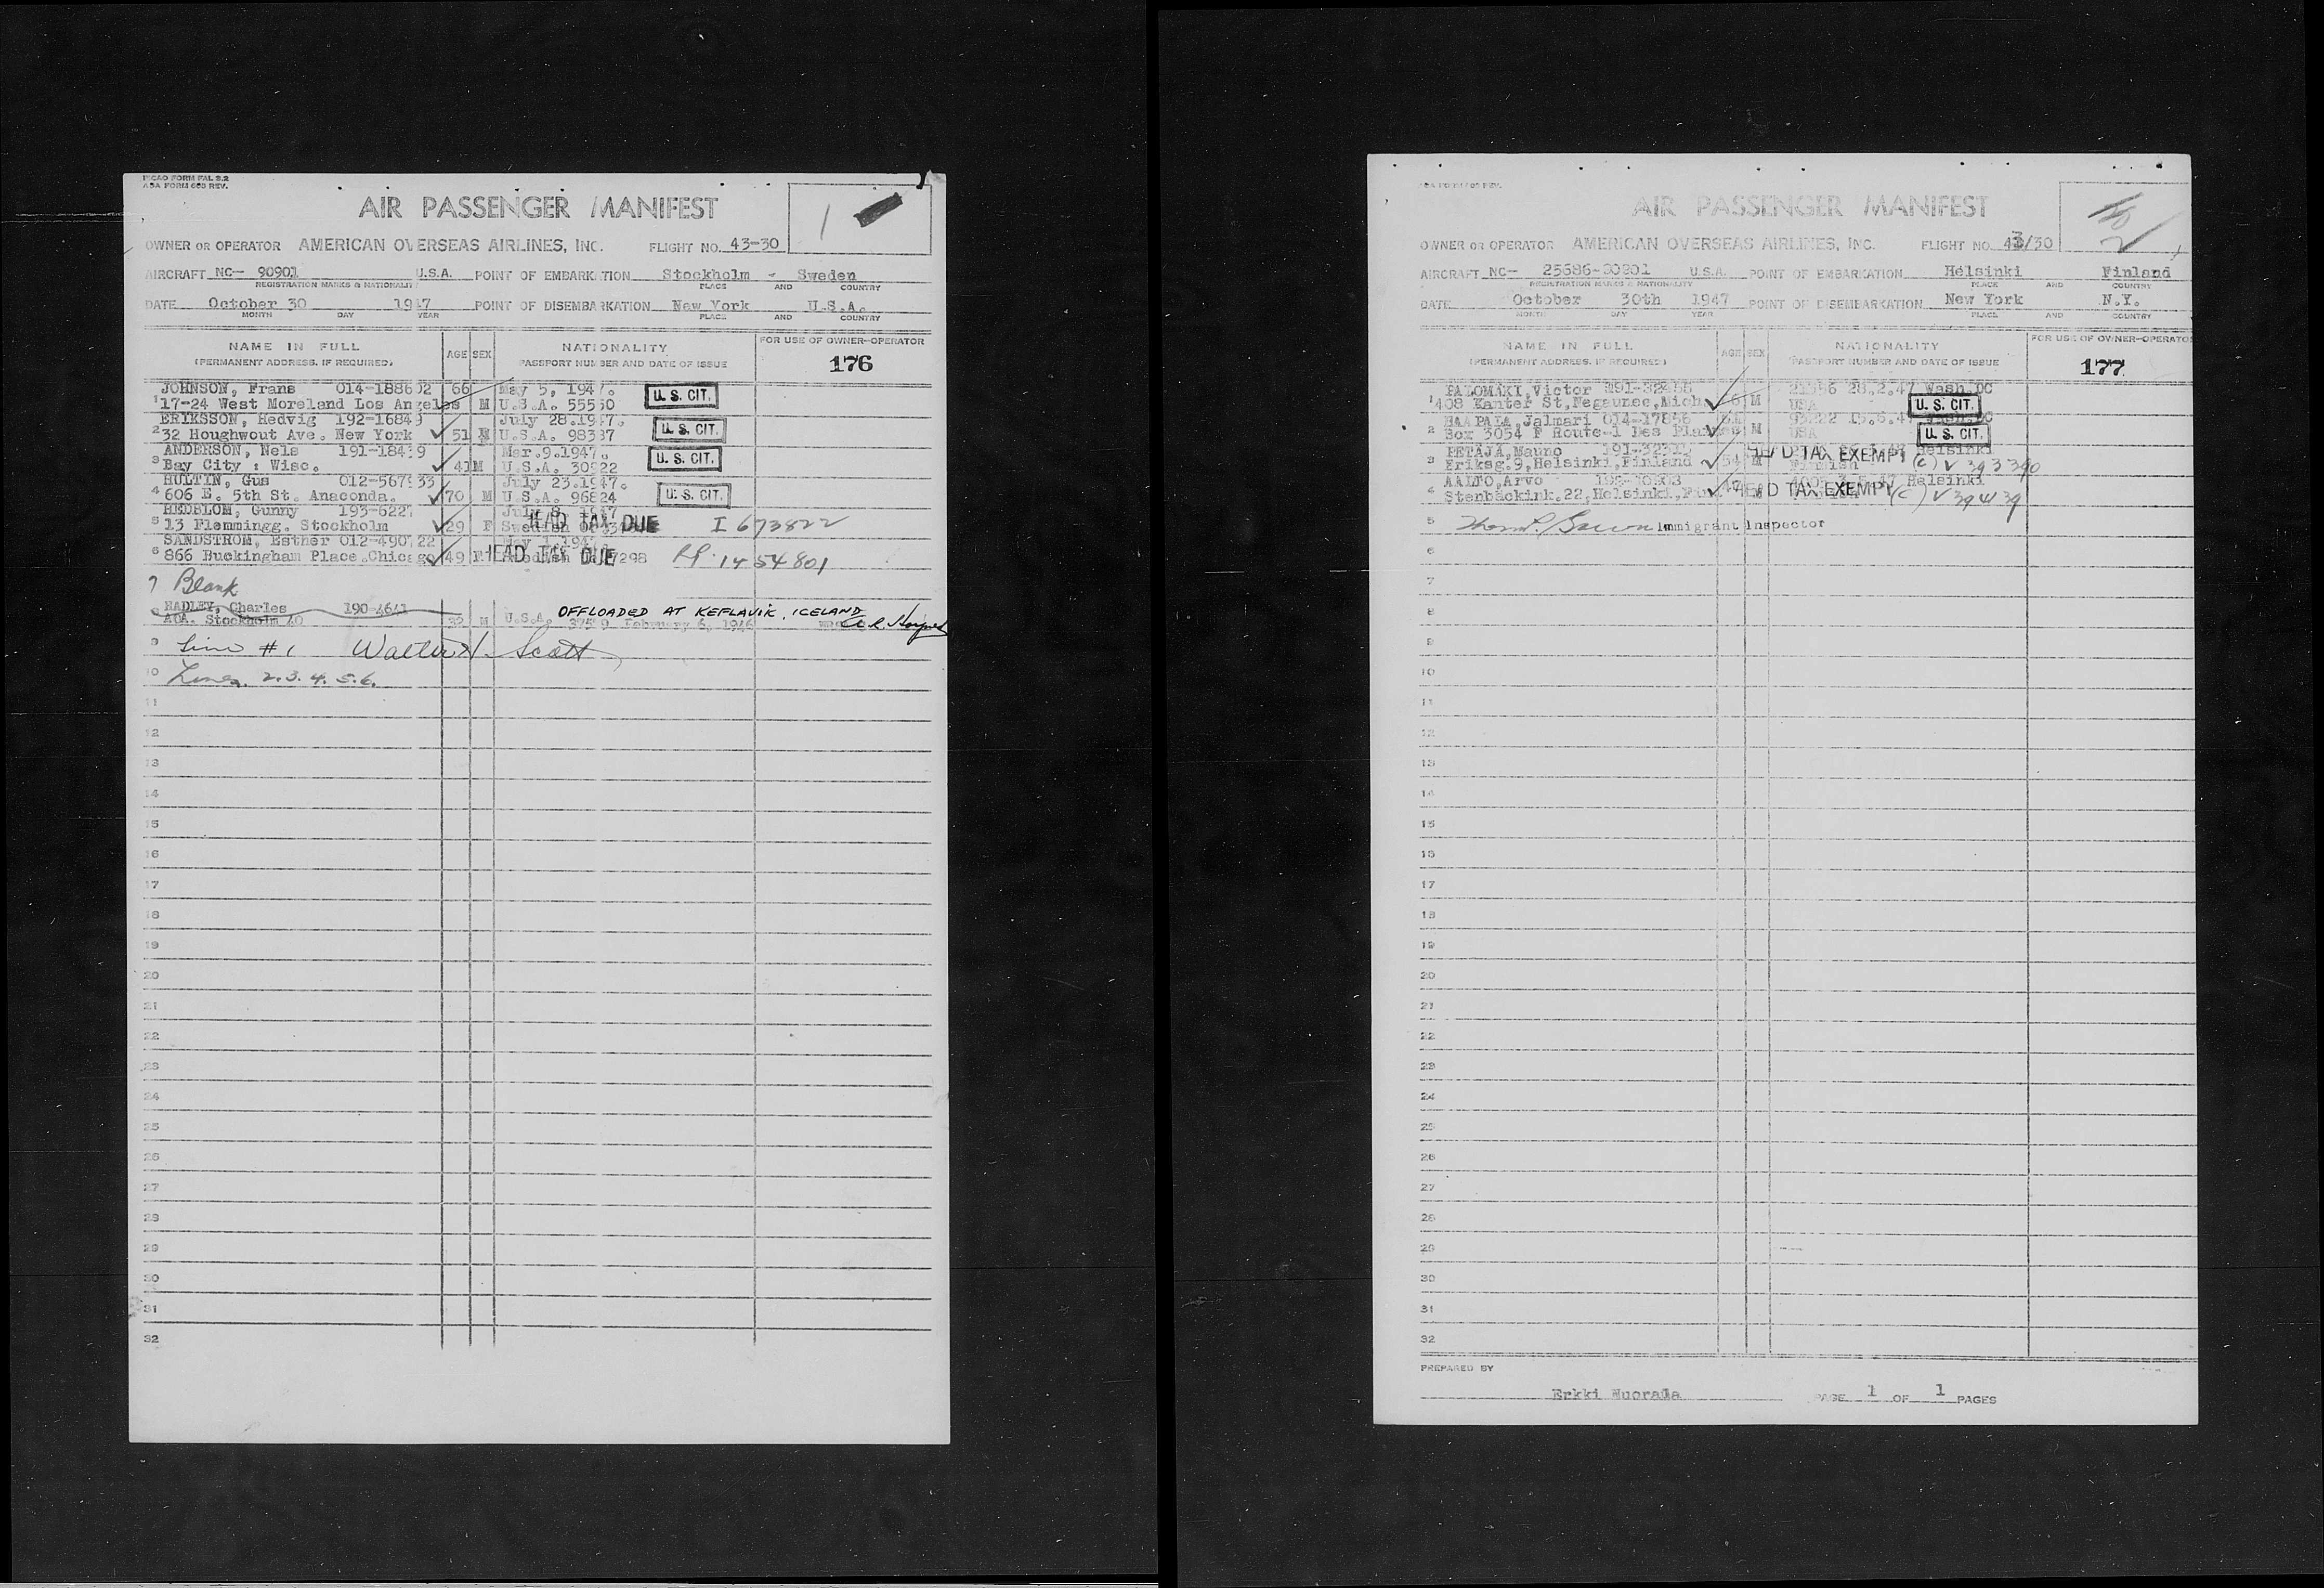 ICAO FORM FAL 3.2
AOA FORM 603 REV.
AIR PASSENGER MANIFEST
1
OWNER OR OPERATOR AMERICAN OVERSEAS AIRLINES, INC. FLIGHT NO. 43-30
AIRCRAFT NC- 90901 U.S.A. POINT OF EMBARKATION Stockholm - Sweden
REGISTRATION MARKS & NATIONALITY PLACE AND COUNTRY
DATE October 30 1947 POINT OF DISEMBARKATION New York U.S.A.
MONTH DAY YEAR PLACE AND COUNTRY
NAME IN FULL AGE SEX NATIONALITY FOR USE OF OWNER-OPERATOR
(PERMANENT ADDRESS, IF REQUIRED) PASSPORT NUMBER AND DATE OF ISSUE 176
JOHNSON, Frans 014-188602 66 May 5, 1947. U. S. CIT.
1 17-24 West Moreland Los Angeles M U.S.A. 55550
ERIKSSON, Hedvig 192-16849 July 28.1947. U. S. CIT.
2 32 Houghwout Ave. New York 51 U.S.A. 98337
ANDERSON, Nels 191-18439 Mar.9.1947. U. S. CIT.
3 Bay City : Wisc. 41 M U.S.A. 30922
HULTIN, Gus 012-567933 July 23.1947. U. S. CIT.
4 606 E. 5th St. Anaconda. 70 M U.S.A. 96824
HEDBLOM, Gunny 193-6227 July 8, 1947
5 13 Flemmingg. Stockholm 29 F Swedish HEAD TAX DUE I 673822
SANDSTROM, Esther 012-490722 May 1.1947
6 866 Buckingham Place.Chicago 49 F HEAD TAX DUE 7298 RP. 1454801
7 Blank
8 HADLEY, Charles 190-4641 OFFLOADED AT KEFLAVIK, ICELAND
AOA. Stockholm 40 32 M U.S.A. 37519 February 6, 1946
9 Line # 1 Walter H. Scott
10 Lines. 2.3.4.5.6.
11
12
13
14
15
16
17
18
19
20
21
22
23
24
25
26
27
28
29
30
31
32
AOA FORM 603 REV.
AIR PASSENGER MANIFEST
2
OWNER OR OPERATOR AMERICAN OVERSEAS AIRLINES, INC. FLIGHT NO. 43/30
AIRCRAFT NC- 25686-90901 U.S.A. POINT OF EMBARKATION Helsinki Finland
REGISTRATION MARKS & NATIONALITY PLACE AND COUNTRY
DATE October 30th 1947 POINT OF DISEMBARKATION New York N.Y.
MONTH DAY YEAR PLACE AND COUNTRY
NAME IN FULL AGE SEX NATIONALITY FOR USE OF OWNER-OPERATOR
(PERMANENT ADDRESS, IF REQUIRED) PASSPORT NUMBER AND DATE OF ISSUE 177
PALOMÄKI, Victor 28.2.47 Wash.DC
1 408 Kanter St, Negaunee, Mich M USA U. S. CIT.
HAAPALA, Jalmari 014-17856 15.6.47
2 Box 3054 F Route-1 Des M USA U. S. CIT.
PETÄJÄ, Mauno HEAD TAX EXEMPT Helsinki
3 Eriksg.9, Helsinki, Finland M Finnish (c) V 393390
AALTO, Arvo Helsinki
4 Stenbäckink.22, Helsinki, HEAD TAX EXEMPT (c) V 394439
5 Immigrant Inspector
6
7
8
9
10
11
12
13
14
15
16
17
18
19
20
21
22
23
24
25
26
27
28
29
30
31
32
PREPARED BY
Erkki Nuorala PAGE 1 OF 1 PAGES